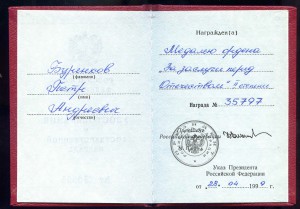 Буренков
(фамилия)
Петр
(имя)
Андреевич
(отчество)
Награжден(а)
Медалью ордена
"За заслуги перед
Отечеством" II степени
Награда № 35797
Указ Президента
Российской Федерации
от 28 04 1999 г.